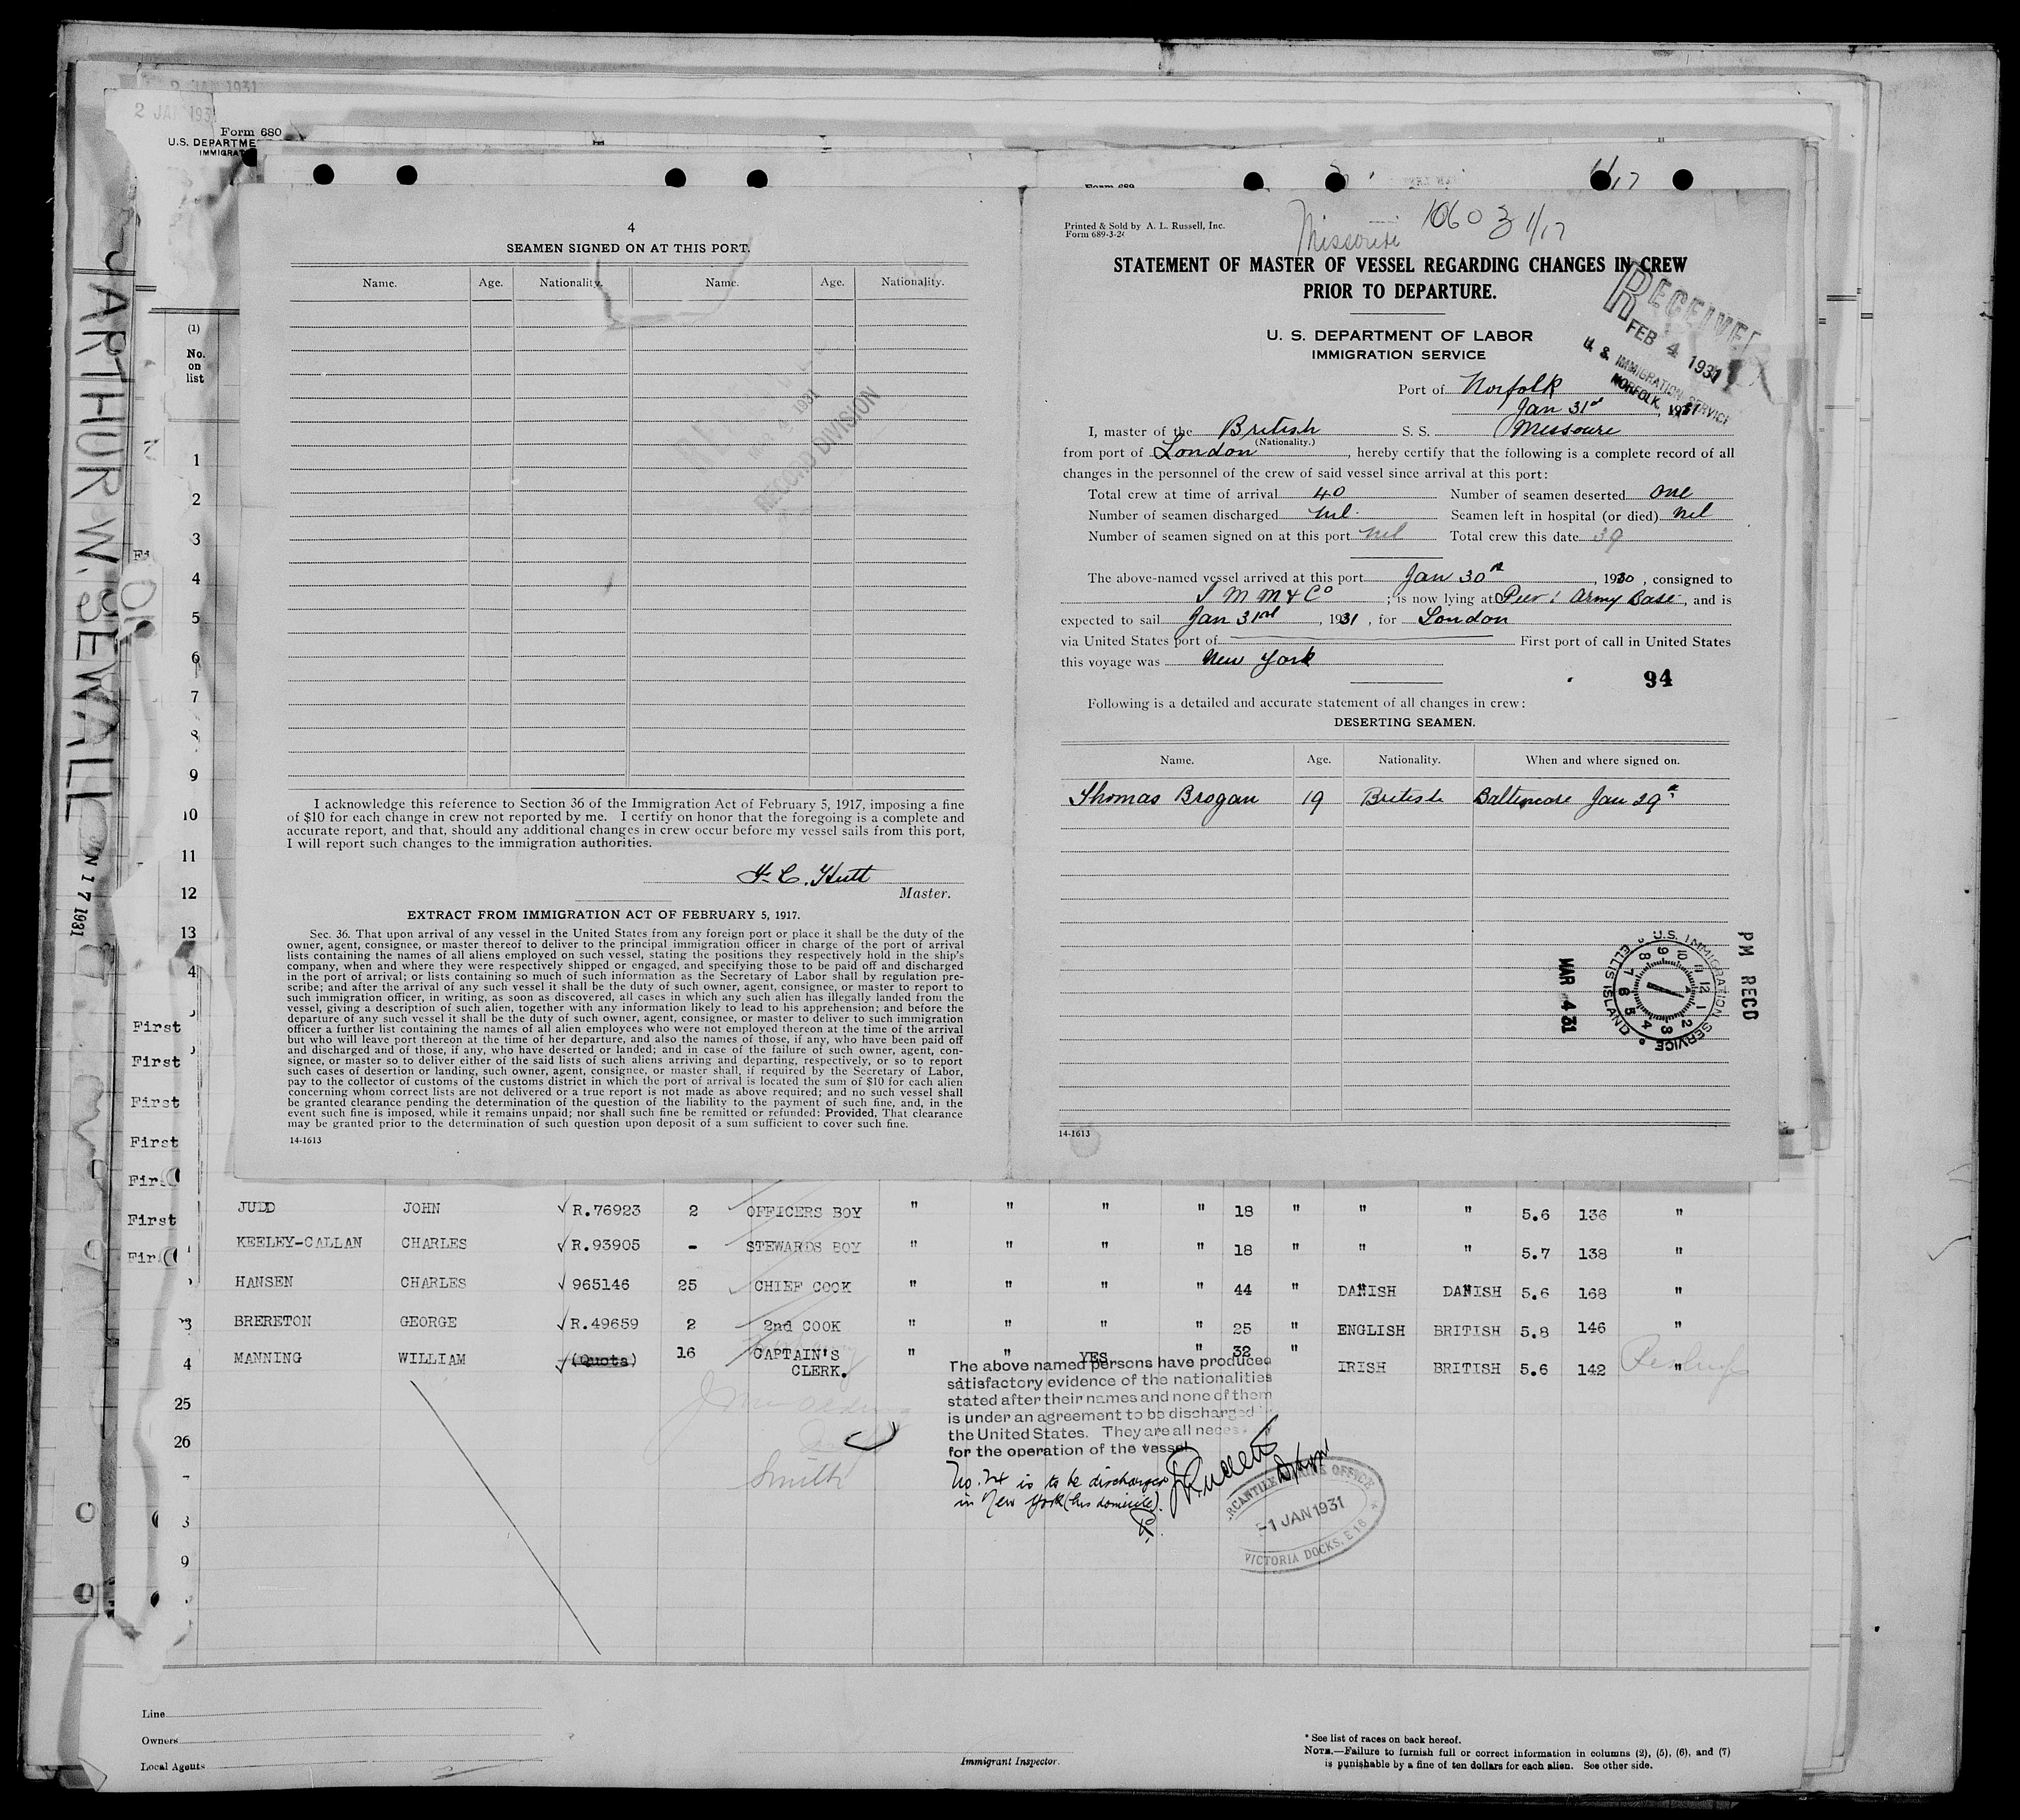 2 JAN 1931
2 JAN 1931
Form 680
U.S. DEPARTME
IMMIGRAT
ARTHUR W. SEWALL
N 17 1931
(1)
No.
on
list
1
2
3
4
5
6
7
8
9
10
11
12
13
4
4
SEAMEN SIGNED ON AT THIS PORT.
Name. Age. Nationality. Name. Age. Nationality.
MAR 4 1931
RECORD DIVISION
I acknowledge this reference to Section 36 of the Immigration Act of February 5, 1917, imposing a fine
of $10 for each change in crew not reported by me. I certify on honor that the foregoing is a complete and
accurate report, and that, should any additional changes in crew occur before my vessel sails from this port,
I will report such changes to the immigration authorities.
F. C. Hutt
Master.
EXTRACT FROM IMMIGRATION ACT OF FEBRUARY 5, 1917.
Sec. 36. That upon arrival of any vessel in the United States from any foreign port or place it shall be the duty of the
owner, agent, consignee, or master thereof to deliver to the principal immigration officer in charge of the port of arrival
lists containing the names of all aliens employed on such vessel, stating the positions they respectively hold in the ship's
company, when and where they were respectively shipped or engaged, and specifying those to be paid off and discharged
in the port of arrival; or lists containing so much of such information as the Secretary of Labor shall by regulation pre-
scribe; and after the arrival of any such vessel it shall be the duty of such owner, agent, consignee, or master to report to
such immigration officer, in writing, as soon as discovered, all cases in which any such alien has illegally landed from the
vessel, giving a description of such alien, together with any information likely to lead to his apprehension; and before the
departure of any such vessel it shall be the duty of such owner, agent, consignee, or master to deliver to such immigration
officer a further list containing the names of all alien employees who were not employed thereon at the time of the arrival
but who will leave port thereon at the time of her departure, and also the names of those, if any, who have been paid off
and discharged and of those, if any, who have deserted or landed; and in case of the failure of such owner, agent, con-
signee, or master so to deliver either of the said lists of such aliens arriving and departing, respectively, or so to report
such cases of desertion or landing, such owner, agent, consignee, or master shall, if required by the Secretary of Labor,
pay to the collector of customs of the customs district in which the port of arrival is located the sum of $10 for each alien
concerning whom correct lists are not delivered or a true report is not made as above required; and no such vessel shall
be granted clearance pending the determination of the question of the liability to the payment of such fine, and, in the
event such fine is imposed, while it remains unpaid; nor shall such fine be remitted or refunded: Provided, That clearance
may be granted prior to the determination of such question upon deposit of a sum sufficient to cover such fine.
14-1613
Printed & Sold by A. L. Russell, Inc.
Form 689-3-2
Missouri 1060 3 1/17
STATEMENT OF MASTER OF VESSEL REGARDING CHANGES IN CREW
PRIOR TO DEPARTURE.
U. S. DEPARTMENT OF LABOR
IMMIGRATION SERVICE
RECEIVED
FEB 4 1931
U. S. IMMIGRATION SERVICE
NORFOLK, VA.
Port of Norfolk
Jan 31st 1931
I, master of the British S. S. Missouri
(Nationality.)
from port of London, hereby certify that the following is a complete record of all
changes in the personnel of the crew of said vessel since arrival at this port:
Total crew at time of arrival 40 Number of seamen deserted one
Number of seamen discharged nil Seamen left in hospital (or died) nil
Number of seamen signed on at this port nil Total crew this date 39
The above-named vessel arrived at this port Jan 30th, 1930, consigned to
I M M & Co; is now lying at Pier 1 Army Base, and is
expected to sail Jan 31st, 1931, for London
via United States port of First port of call in United States
this voyage was New York
94
Following is a detailed and accurate statement of all changes in crew:
DESERTING SEAMEN.
Name. Age. Nationality. When and where signed on.
Thomas Brogan 19 British Baltimore Jan 29th
PM RECD
U.S. IMMIGRATION SERVICE
ELLIS ISLAND
MAR 4 31
14-1613
First
First
First
First
First
First
JUDD JOHN R.76923 2 OFFICERS BOY " " " " 18 " " " 5.6 136 "
KEELEY-CALLAN CHARLES R.93905 - STEWARDS BOY " " " " 18 " " " 5.7 138 "
HANSEN CHARLES 965146 25 CHIEF COOK " " " " 44 " DANISH DANISH 5.6 168 "
3 BRERETON GEORGE R.49659 2 2nd COOK " " " " 25 " ENGLISH BRITISH 5.8 146 "
4 MANNING WILLIAM (Quota) 16 CAPTAIN'S CLERK. " " YES " 32 " IRISH BRITISH 5.6 142 "
25
26
9
The above named persons have produced
satisfactory evidence of the nationalities
stated after their names and none of them
is under an agreement to be discharged
the United States. They are all neces
for the operation of the vessel
No. 24 is to be discharged
in New York (his domicile).
Smith
MERCANTILE MARINE OFFICE
-1 JAN 1931
VICTORIA DOCKS, E 16
Line
Owners
Local Agents
Immigrant Inspector.
* See list of races on back hereof.
NOTE.—Failure to furnish full or correct information in columns (2), (5), (6), and (7)
is punishable by a fine of ten dollars for each alien. See other side.